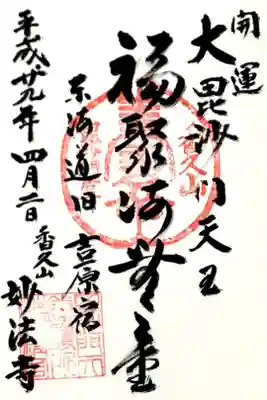 開運
大毘沙門天王
福聚海無量
東海道旧吉原宿
平成廿九年四月二日
香久山妙法寺
香久山